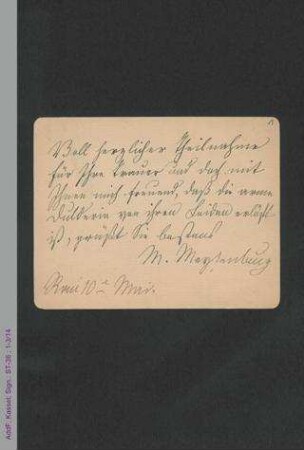 1
Voll herzlicher Theilnahme
für Ihre Trauer und doch mit
Ihnen mich freuend, daß die arme
Dulderin von ihren Leiden erlöst
ist, grüßt Sie bestens
M. Meysenbug
Rom 10t Mai.
AddF, Kassel, Sign.: ST-38 ; 1-3/14